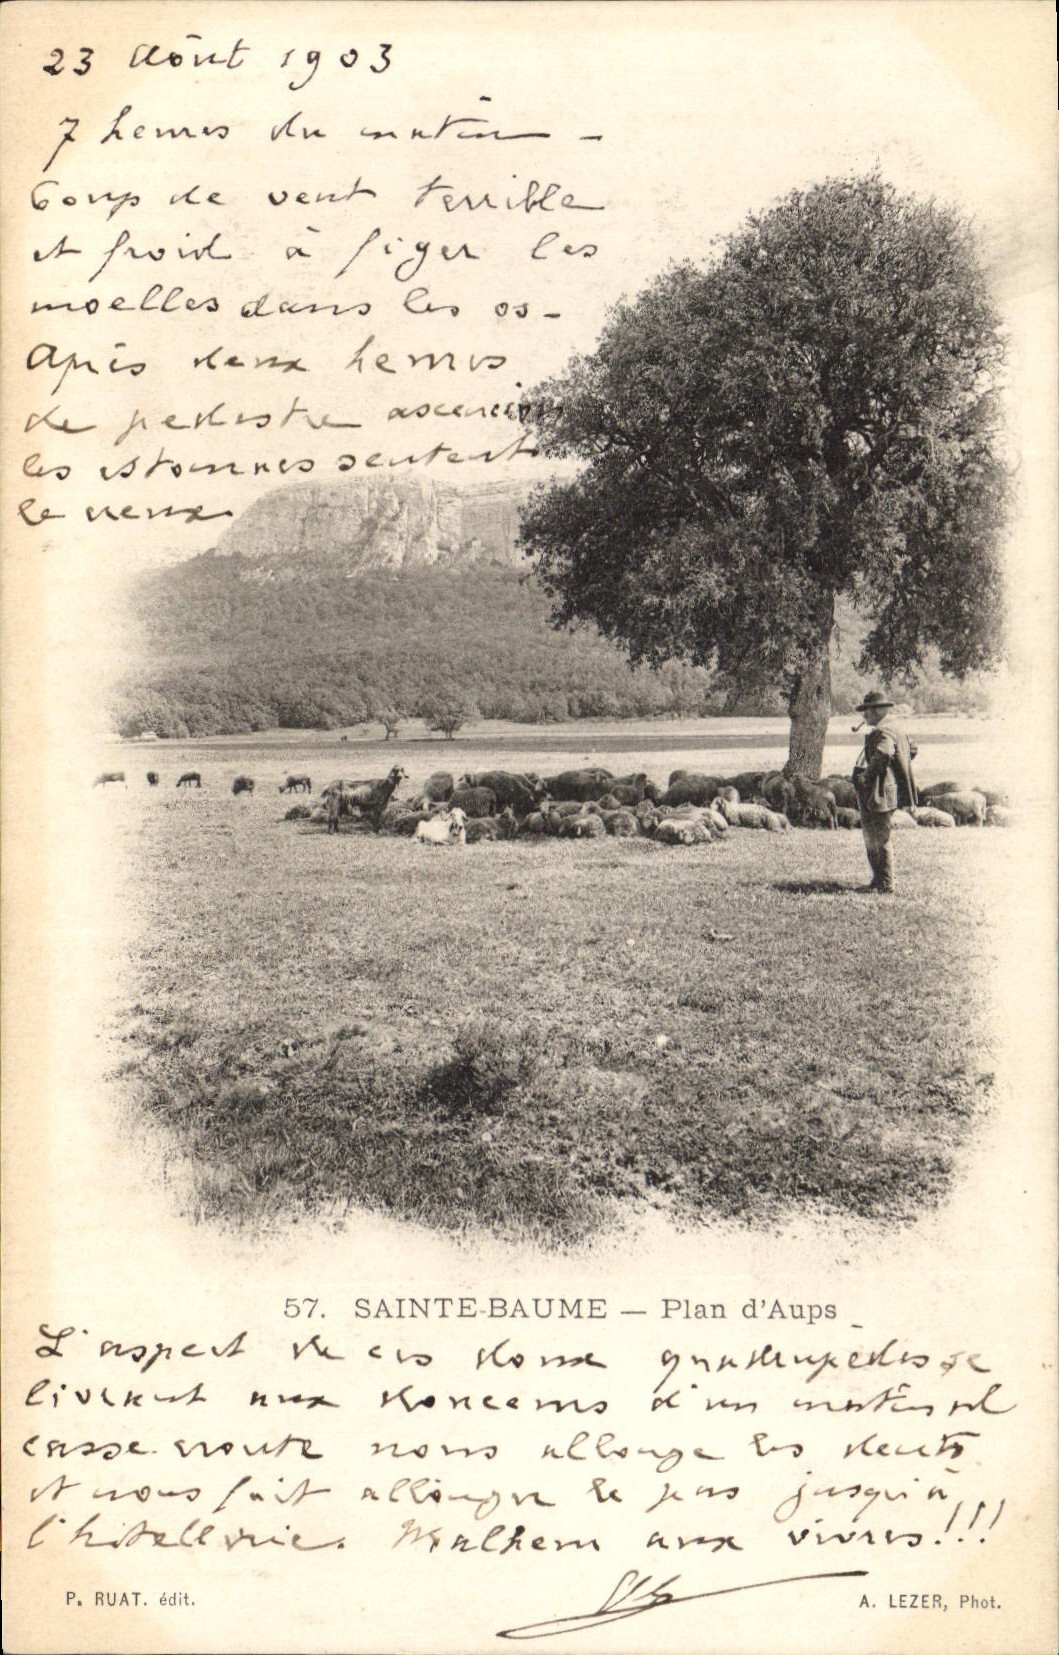 23 Août 1903
7 heures du matin -
Coup de vent terrible
et froid à figer les
moelles dans les os -
Après deux heures
de pédestre ascension
les estomacs sentent
le creux
57. SAINTE-BAUME — Plan d'Aups
L'aspect de ces doux quadrupèdes se
livrant aux douceurs d'un matinal
casse-croute nous allonge les dents
et nous fait allonger le pas jusqu'à
l'hôtellerie. Malheur aux vivres!!!
P. RUAT. édit.
A. LEZER, Phot.